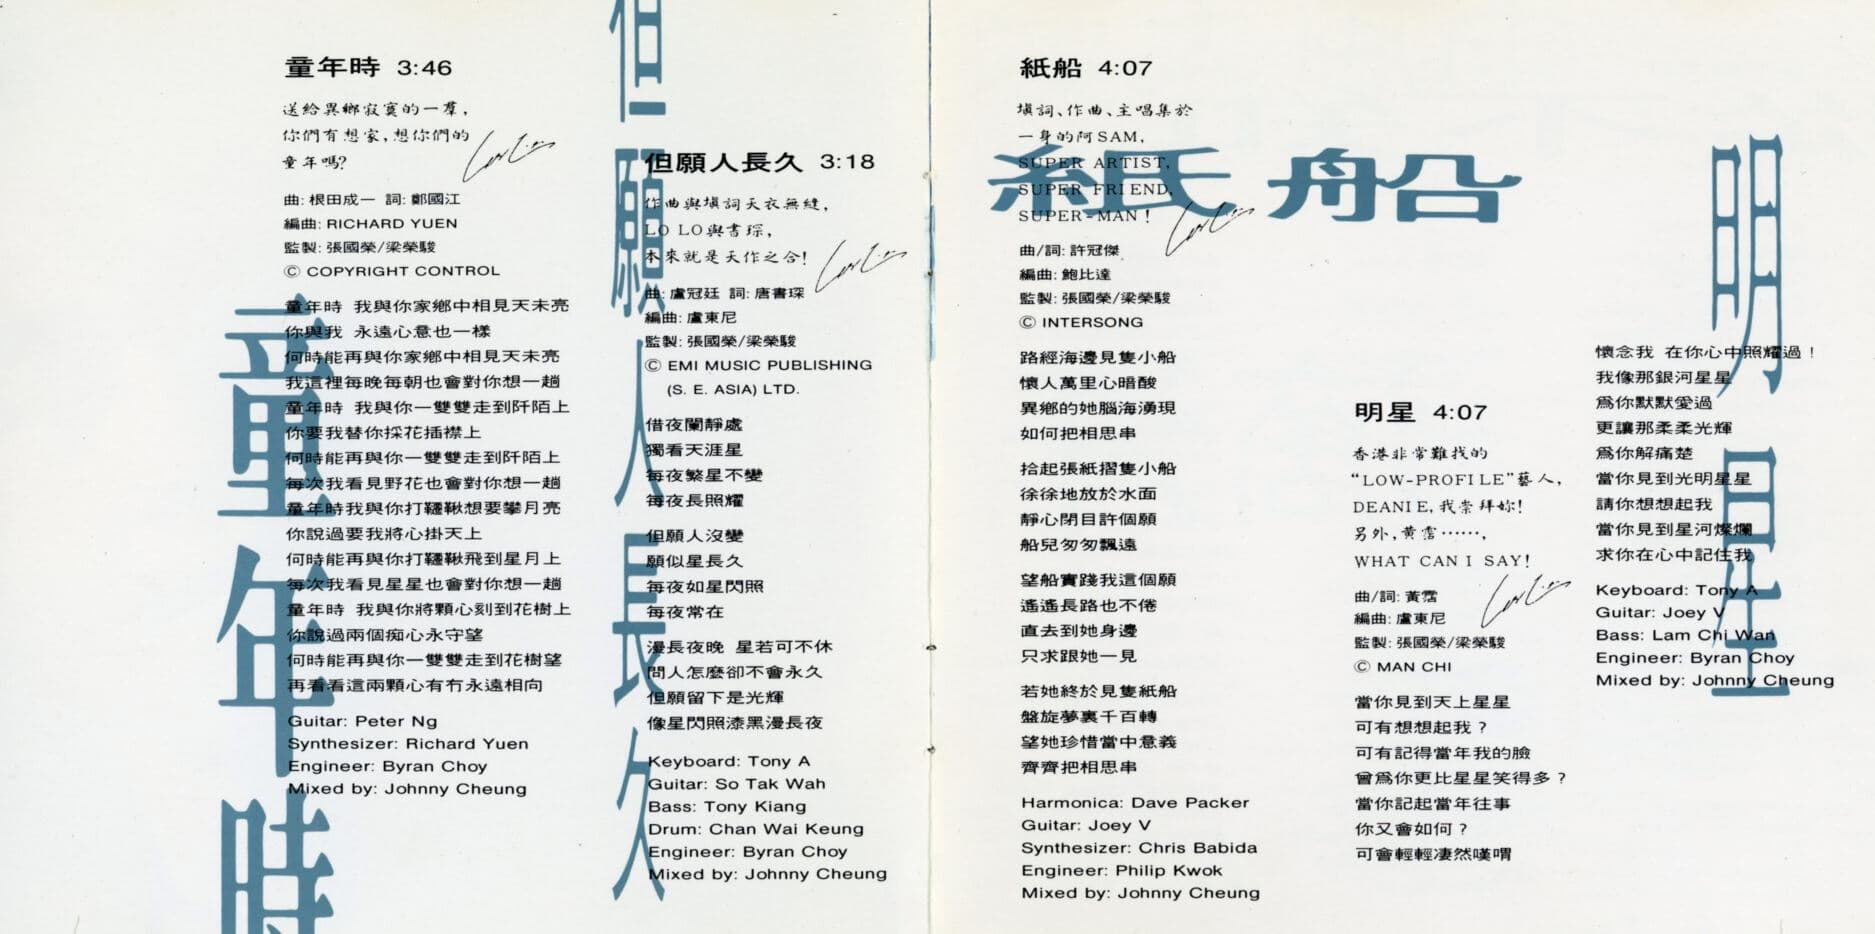 童年時 3:46
送給異鄉寂寞的一羣，
你們有想家，想你們的
童年嗎？
曲：根田成一 詞：鄭國江
編曲：RICHARD YUEN
監製：張國榮/梁榮駿
© COPYRIGHT CONTROL
童年時 我與你家鄉中相見天未亮
你與我 永遠心意也一樣
何時能再與你家鄉中相見天未亮
我這裡每晚每朝也會對你想一趟
童年時 我與你一雙雙走到阡陌上
你要我替你採花插襟上
何時能再與你一雙雙走到阡陌上
每次我看見野花也會對你想一趟
童年時我與你打韆鞦想要攀月亮
你說過要我將心掛天上
何時能再與你打韆鞦飛到星月上
每次我看見星星也會對你想一趟
童年時 我與你將顆心刻到花樹上
你說過兩個痴心永守望
何時能再與你一雙雙走到花樹望
再看看這兩顆心有冇永遠相向
Guitar: Peter Ng
Synthesizer: Richard Yuen
Engineer: Byran Choy
Mixed by: Johnny Cheung
童年時
但願人長久
但願人長久 3:18
作曲與填詞天衣無縫，
LO LO與書琛，
本來就是天作之合！
曲：盧冠廷 詞：唐書琛
編曲：盧東尼
監製：張國榮/梁榮駿
© EMI MUSIC PUBLISHING
(S. E. ASIA) LTD.
借夜闌靜處
獨看天涯星
每夜繁星不變
每夜長照耀
但願人沒變
願似星長久
每夜如星閃照
每夜常在
漫長夜晚 星若可不休
問人怎麼卻不會永久
但願留下是光輝
像星閃照漆黑漫長夜
Keyboard: Tony A
Guitar: So Tak Wah
Bass: Tony Kiang
Drum: Chan Wai Keung
Engineer: Byran Choy
Mixed by: Johnny Cheung
紙船 4:07
填詞、作曲、主唱集於
一身的阿SAM，
SUPER ARTIST,
SUPER FRIEND,
SUPER-MAN！
曲/詞：許冠傑
編曲：鮑比達
監製：張國榮/梁榮駿
© INTERSONG
路經海邊見隻小船
懷人萬里心暗酸
異鄉的她腦海湧現
如何把相思串
拾起張紙摺隻小船
徐徐地放於水面
靜心閉目許個願
船兒匆匆飄遠
望船實踐我這個願
遙遙長路也不倦
直去到她身邊
只求跟她一見
若她終於見隻紙船
盤旋夢裏千百轉
望她珍惜當中意義
齊齊把相思串
Harmonica: Dave Packer
Guitar: Joey V
Synthesizer: Chris Babida
Engineer: Philip Kwok
Mixed by: Johnny Cheung
紙船
明星 4:07
香港非常難找的
“LOW-PROFILE”藝人，
DEANIE，我崇拜妳！
另外，黃霑……，
WHAT CAN I SAY!
曲/詞：黃霑
編曲：盧東尼
監製：張國榮/梁榮駿
© MAN CHI
當你見到天上星星
可有想想起我？
可有記得當年我的臉
曾爲你更比星星笑得多？
當你記起當年往事
你又會如何？
可會輕輕凄然嘆喟
懷念我 在你心中照耀過！
我像那銀河星星
爲你默默愛過
更讓那柔柔光輝
爲你解痛楚
當你見到光明星星
請你想想起我
當你見到星河燦爛
求你在心中記住我
Keyboard: Tony A
Guitar: Joey V
Bass: Lam Chi Wan
Engineer: Byran Choy
Mixed by: Johnny Cheung
明星